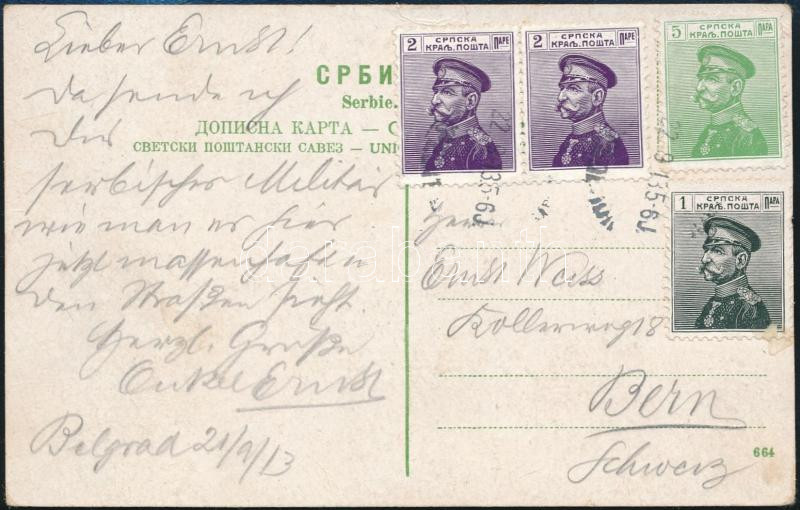 Lieber Ernst!
Da sende ich
Dir
serbisches Militär
wie man es hier
jetzt massenhaft in
den Straßen sieht.
Herzl. Grüße
Onkel Ernst
Belgrad 21/9/13
СРБИ
Serbie.
ДОПИСНА КАРТА — C
СВЕТСКИ ПОШТАНСКИ САВЕЗ — UNI
2 СРПСКА ПАРЕ
КРАЉ. ПОШТА
2 СРПСКА ПАРЕ
КРАЉ. ПОШТА
5 СРПСКА ПАРЕ
КРАЉ. ПОШТА
1 СРПСКА ПАРА
КРАЉ. ПОШТА
22 9 13 5-6
Herrn
Ernst Wass
Kollerweg 18
Bern
Schweiz
664
darabanth